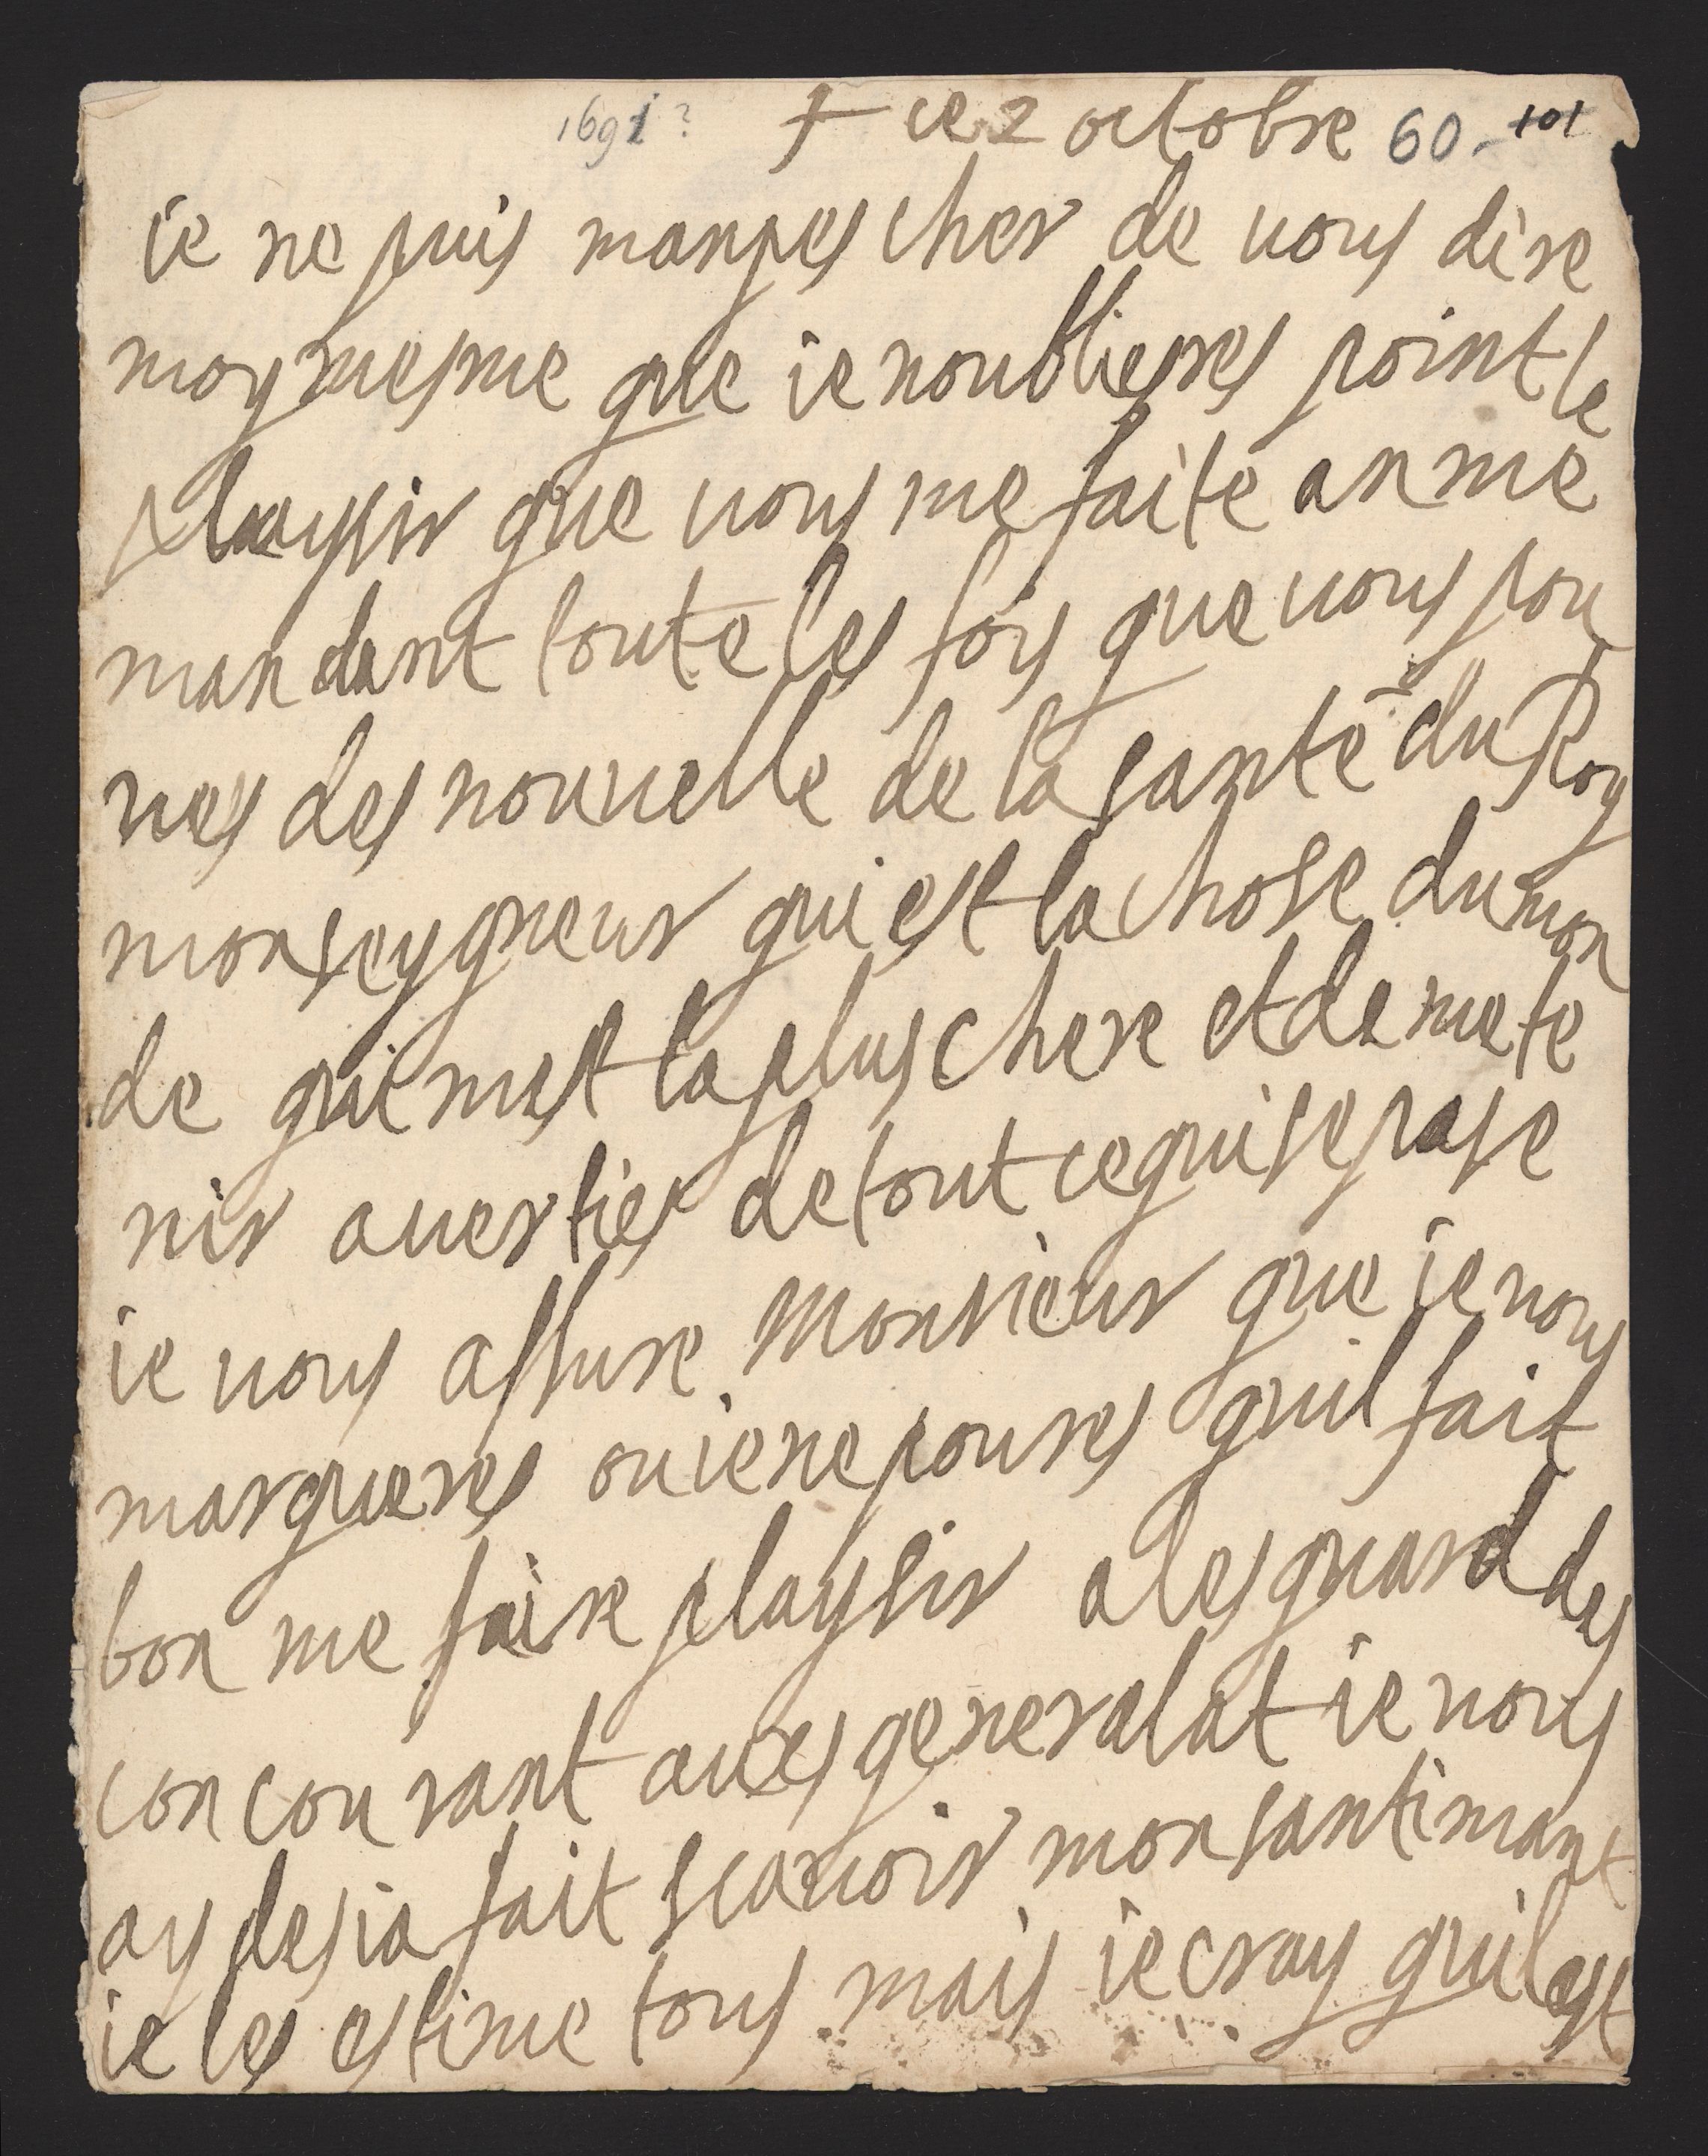 1691? + ce 2 octobre 60 - 101
ie ne puis manpescher de uous dire
moy mesme que ie noublieres point le
playsir que uous me faite an me
mandant toute les fois que uous pou
ues des nouuelle de la santé du Roy
monseygneur qui est la chose du mon
de qui mest la plus chere et de me te
nir auertier de tout ce qui se pase
ie uous assure Monsieur que ie uous
marqueres ou ie ne poures quil fait
bon me faire playsir a lesguard des
concourant aues generalat ie uous
ay desia fait scauoir mon santimant
ie les estime tous mais ie cray quil est